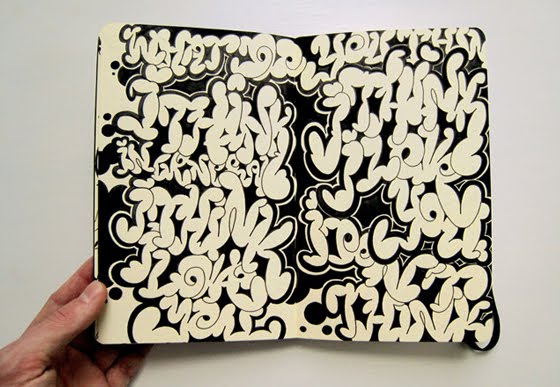 WHAT DO YOU THIN
I THINK
IN GENERAL
I THINK
I LOVE
YOU
I THINK
I LOVE
YOU
I DO NOT
THINK